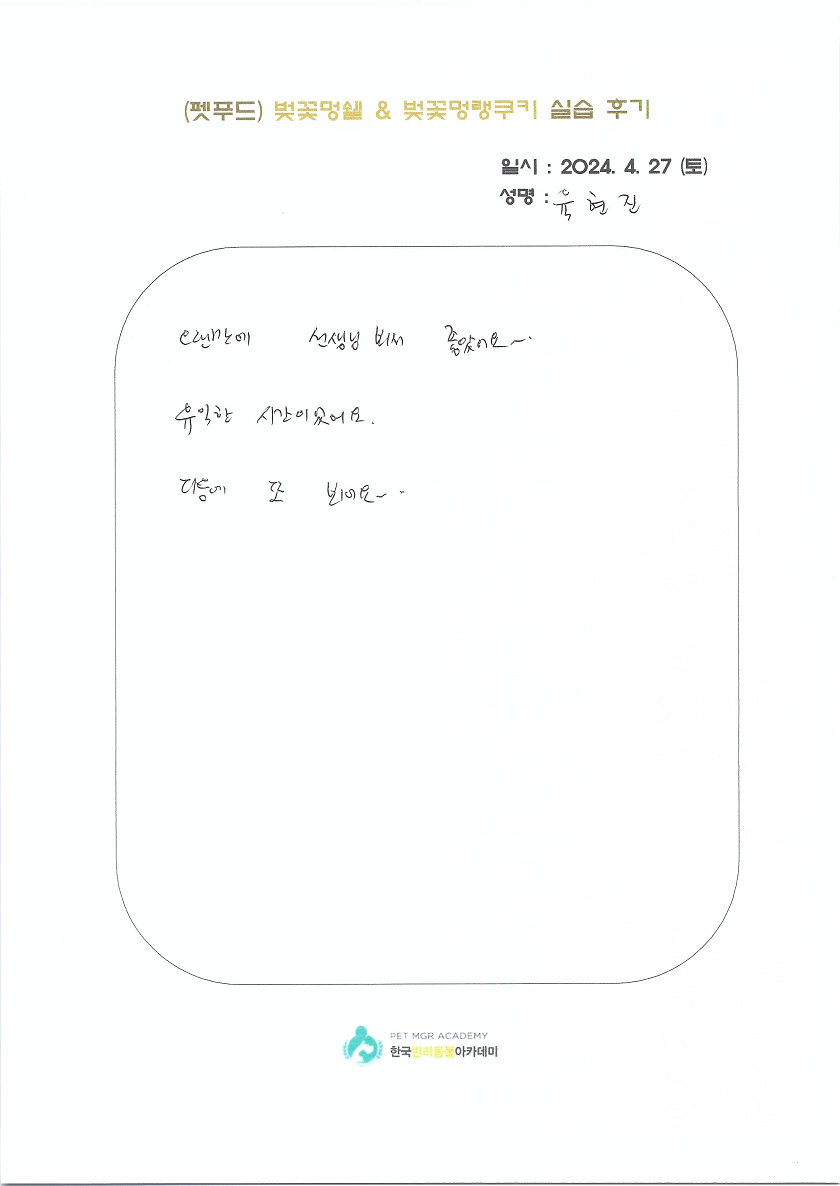 (펫푸드) 벚꽃멍쉘 & 벚꽃멍랭쿠키 실습 후기
일시 : 2024. 4. 27 (토)
성명 : 육현진
오랜만에 선생님 봬서 좋았어요~.
유익한 시간이었어요.
다음에 또 뵈어요~..
PET MGR ACADEMY
한국반려동물아카데미